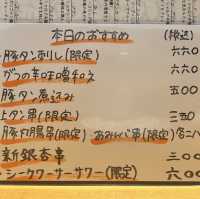 本日のおすすめ (税込)
豚タン刺し(限定) 六六〇
の辛味噌和え 六六〇
豚タン煮込み 五〇〇
タン串(限定) 三五〇
豚内腸串(限定) あみレバ串(限定) 各二八
新銀杏串 三〇〇
シークワーサーサワー(限定) 六〇〇